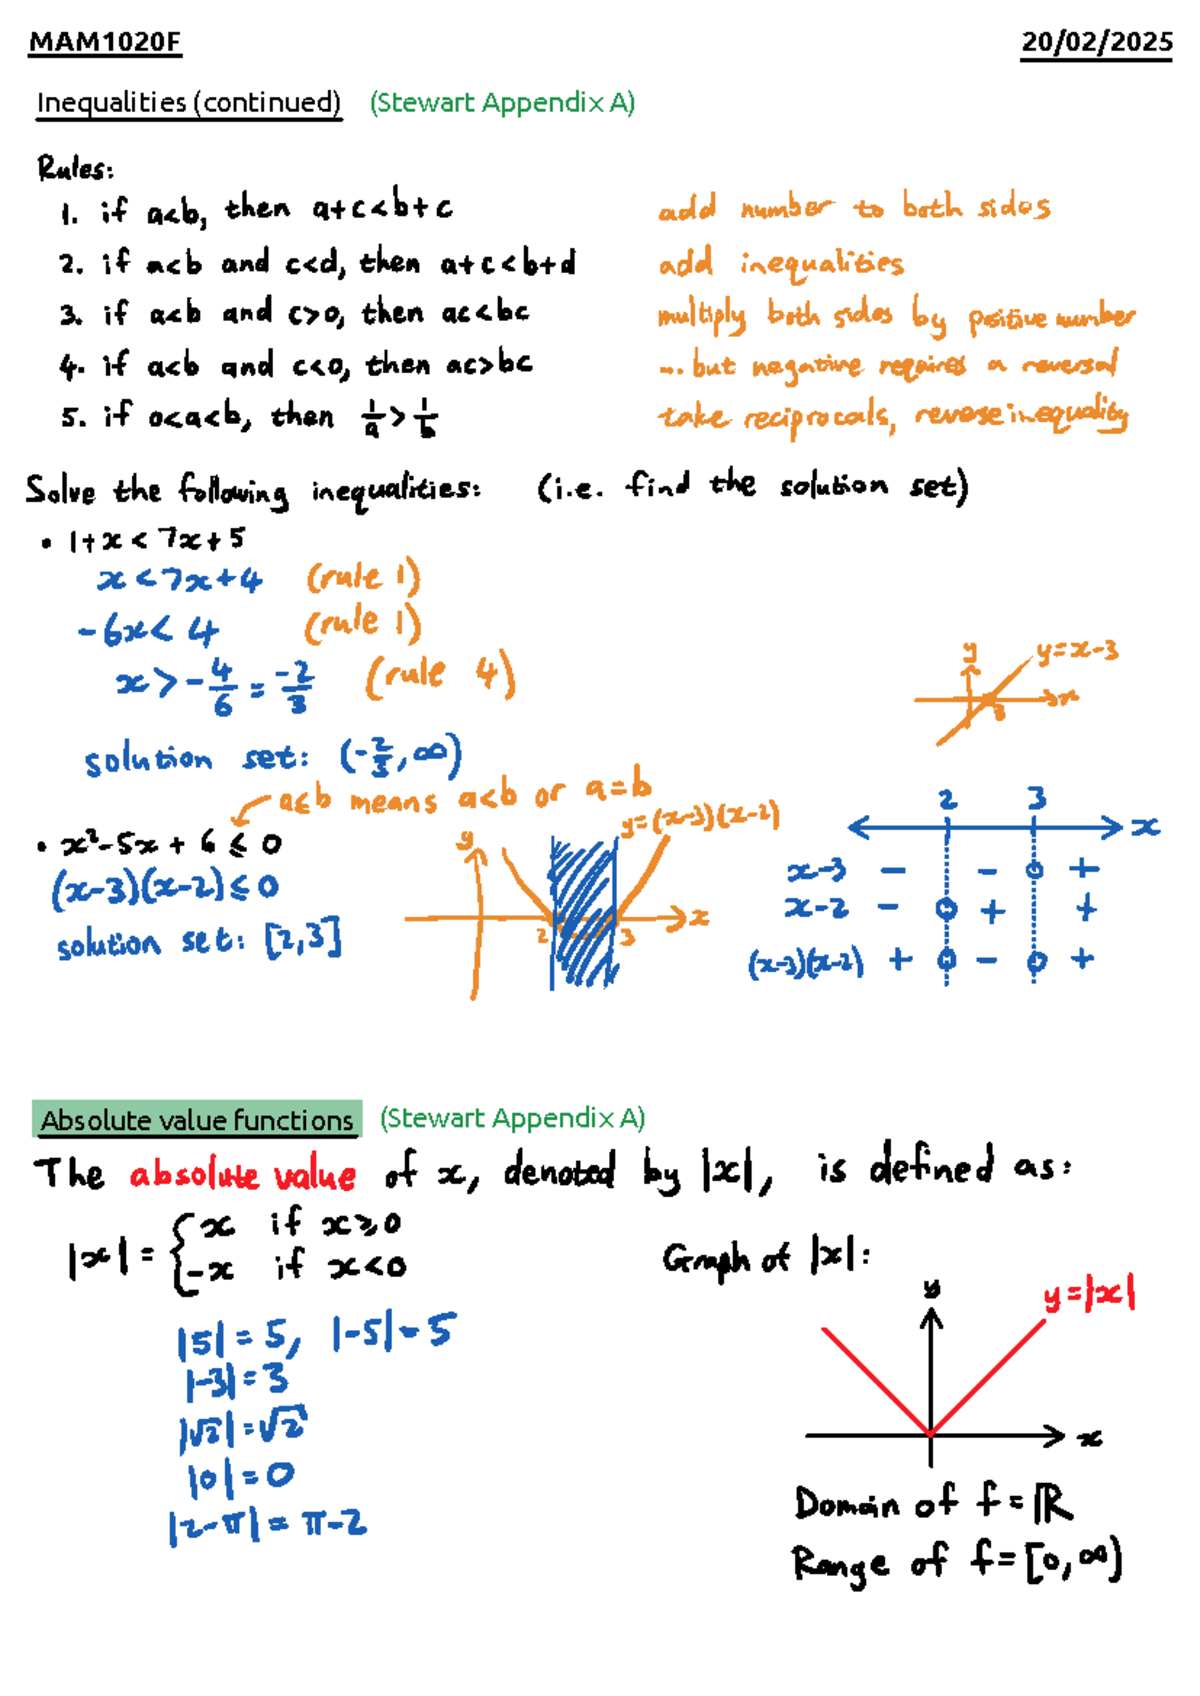 MAM1020F 20/02/2025
Inequalities (continued) (Stewart Appendix A)
Rules:
1. if a<b, then a+c<b+c add number to both sides
2. if a<b and c<d, then a+c<b+d add inequalities
3. if a<b and c>0, then ac<bc multiply both sides by positive number
4. if a<b and c<0, then ac>bc ... but negative requires a reversal
5. if 0<a<b, then 1/a > 1/b take reciprocals, reverse inequality
Solve the following inequalities: (i.e. find the solution set)
• 1+x < 7x+5
x < 7x+4 (rule 1)
-6x < 4 (rule 1)
x > -4/6 = -2/3 (rule 4)
y y=x-3
3 x
solution set: (-2/3, ∞)
a≤b means a<b or a=b
• x²-5x+6 ≤ 0
(x-3)(x-2) ≤ 0
solution set: [2,3]
y y=(x-3)(x-2)
2 3 x
2 3 x
x-3 - - 0 +
x-2 - 0 + +
(x-3)(x-2) + 0 - 0 +
Absolute value functions (Stewart Appendix A)
The absolute value of x, denoted by |x|, is defined as:
|x| = { x if x≥0
-x if x<0
Graph of |x|:
y y=|x|
x
|5| = 5, |-5| = 5
|-3| = 3
|√2| = √2
|0| = 0
|2-π| = π-2
Domain of f = ℝ
Range of f = [0, ∞)